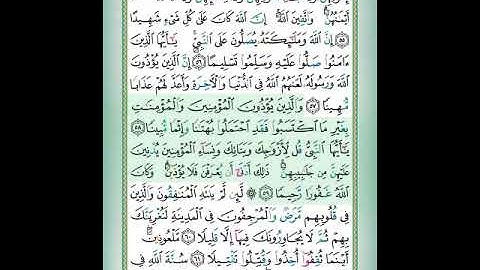 أَيْمَٰنُهُنَّ ۗ وَٱتَّقِينَ ٱللَّهَ ۚ إِنَّ ٱللَّهَ كَانَ عَلَىٰ كُلِّ شَىْءٍ شَهِيدًا
٥٥ إِنَّ ٱللَّهَ وَمَلَٰٓئِكَتَهُۥ يُصَلُّونَ عَلَى ٱلنَّبِىِّ ۚ يَٰٓأَيُّهَا ٱلَّذِينَ
ءَامَنُوا۟ صَلُّوا۟ عَلَيْهِ وَسَلِّمُوا۟ تَسْلِيمًا ٥٦ إِنَّ ٱلَّذِينَ يُؤْذُونَ
ٱللَّهَ وَرَسُولَهُۥ لَعَنَهُمُ ٱللَّهُ فِى ٱلدُّنْيَا وَٱلْءَاخِرَةِ وَأَعَدَّ لَهُمْ عَذَابًا
مُّهِينًا ٥٧ وَٱلَّذِينَ يُؤْذُونَ ٱلْمُؤْمِنِينَ وَٱلْمُؤْمِنَٰتِ
بِغَيْرِ مَا ٱكْتَسَبُوا۟ فَقَدِ ٱحْتَمَلُوا۟ بُهْتَٰنًا وَإِثْمًا مُّبِينًا ٥٨
يَٰٓأَيُّهَا ٱلنَّبِىُّ قُل لِّأَزْوَٰجِكَ وَبَنَاتِكَ وَنِسَآءِ ٱلْمُؤْمِنِينَ يُدْنِينَ
عَلَيْهِنَّ مِن جَلَٰبِيبِهِنَّ ۚ ذَٰلِكَ أَدْنَىٰٓ أَن يُعْرَفْنَ فَلَا يُؤْذَيْنَ ۗ وَكَانَ
ٱللَّهُ غَفُورًا رَّحِيمًا ٥٩ ۞ لَّئِن لَّمْ يَنتَهِ ٱلْمُنَٰفِقُونَ وَٱلَّذِينَ
فِى قُلُوبِهِم مَّرَضٌ وَٱلْمُرْجِفُونَ فِى ٱلْمَدِينَةِ لَنُغْرِيَنَّكَ
بِهِمْ ثُمَّ لَا يُجَاوِرُونَكَ فِيهَآ إِلَّا قَلِيلًا ٦٠ مَّلْعُونِينَ ۖ
أَيْنَمَا ثُقِفُوٓا۟ أُخِذُوا۟ وَقُتِّلُوا۟ تَقْتِيلًا ٦١ سُنَّةَ ٱللَّهِ فِى